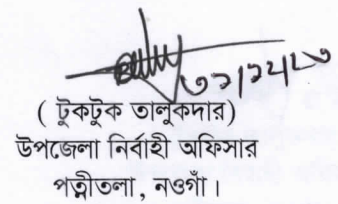 ৩১/১২/২৩
( টুকটুক তালুকদার)
উপজেলা নির্বাহী অফিসার
পত্নীতলা , নওগাঁ।